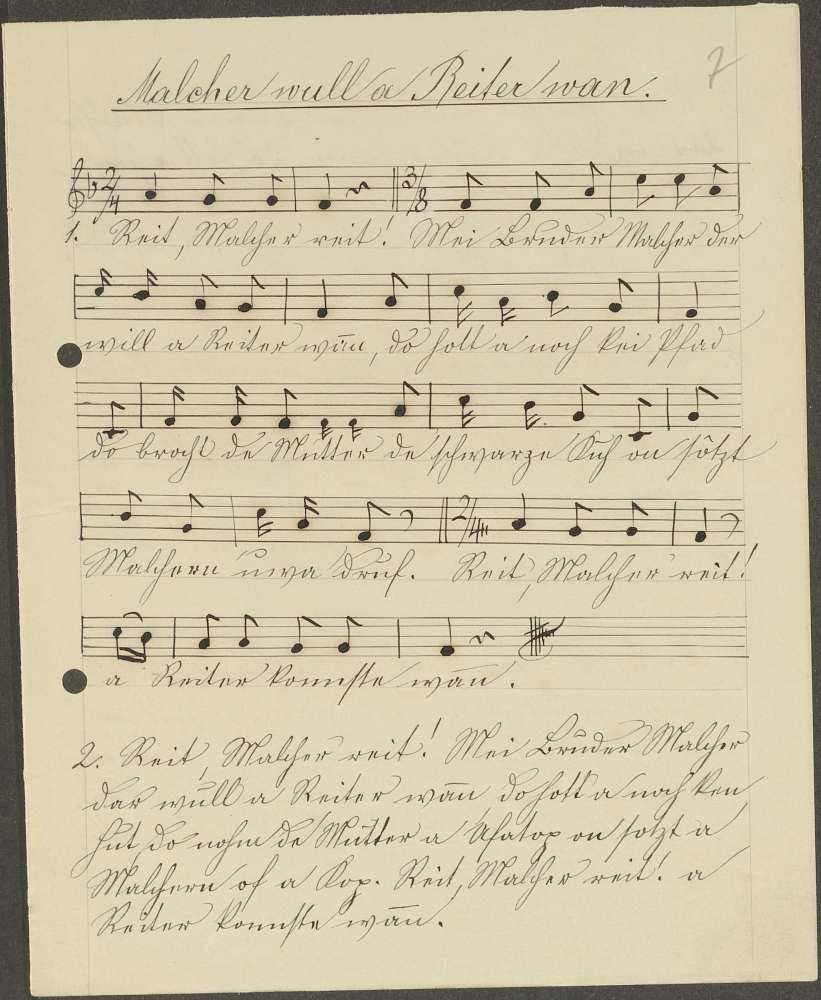 7
Malcher wull a Reiter wan.
1. Reit, Malcher reit! Mei Bruder Malcher der
will a Reiter wan, do hott a noch kei Pfad
do brocht de Mutter de schwarze Kuh on sötzt
Malchern uwa druf. Reit, Malcher reit!
a Reiter konnste wan.
2. Reit, Malcher reit! Mei Bruder Malcher
dar wull a Reiter wan do hott a noch ken
Hut, do nohm de Mutter a on sotzt a
Malchern of a Kop. Reit, Malcher reit! a
Reiter konnste wan.